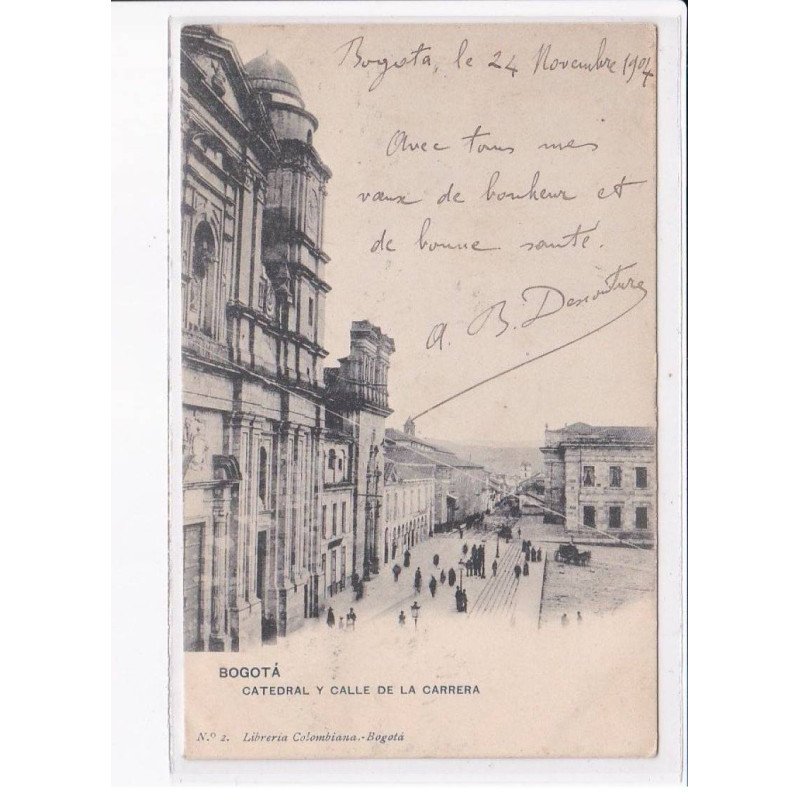 Bogota, le 24 Novembre 1904
Avec tous mes
vœux de bonheur et
de bonne santé.
A. B.
BOGOTÁ
CATEDRAL Y CALLE DE LA CARRERA
N.º 2. Libreria Colombiana.-Bogotá